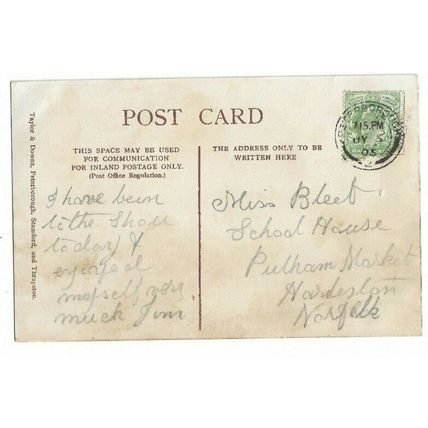 POST CARD
THIS SPACE MAY BE USED
FOR COMMUNICATION
FOR INLAND POSTAGE ONLY.
(Post Office Regulation.)
I have been
to the Show
today &
enjoyed
myself very
much Jim
THE ADDRESS ONLY TO BE
WRITTEN HERE
Miss Bleet
School House
Pulham Market
Harleston
Norfolk
PETERBOROUGH
7 15 PM
JY 5
05
Taylor & Downs, Peterborough, Stamford, and Thrapston.